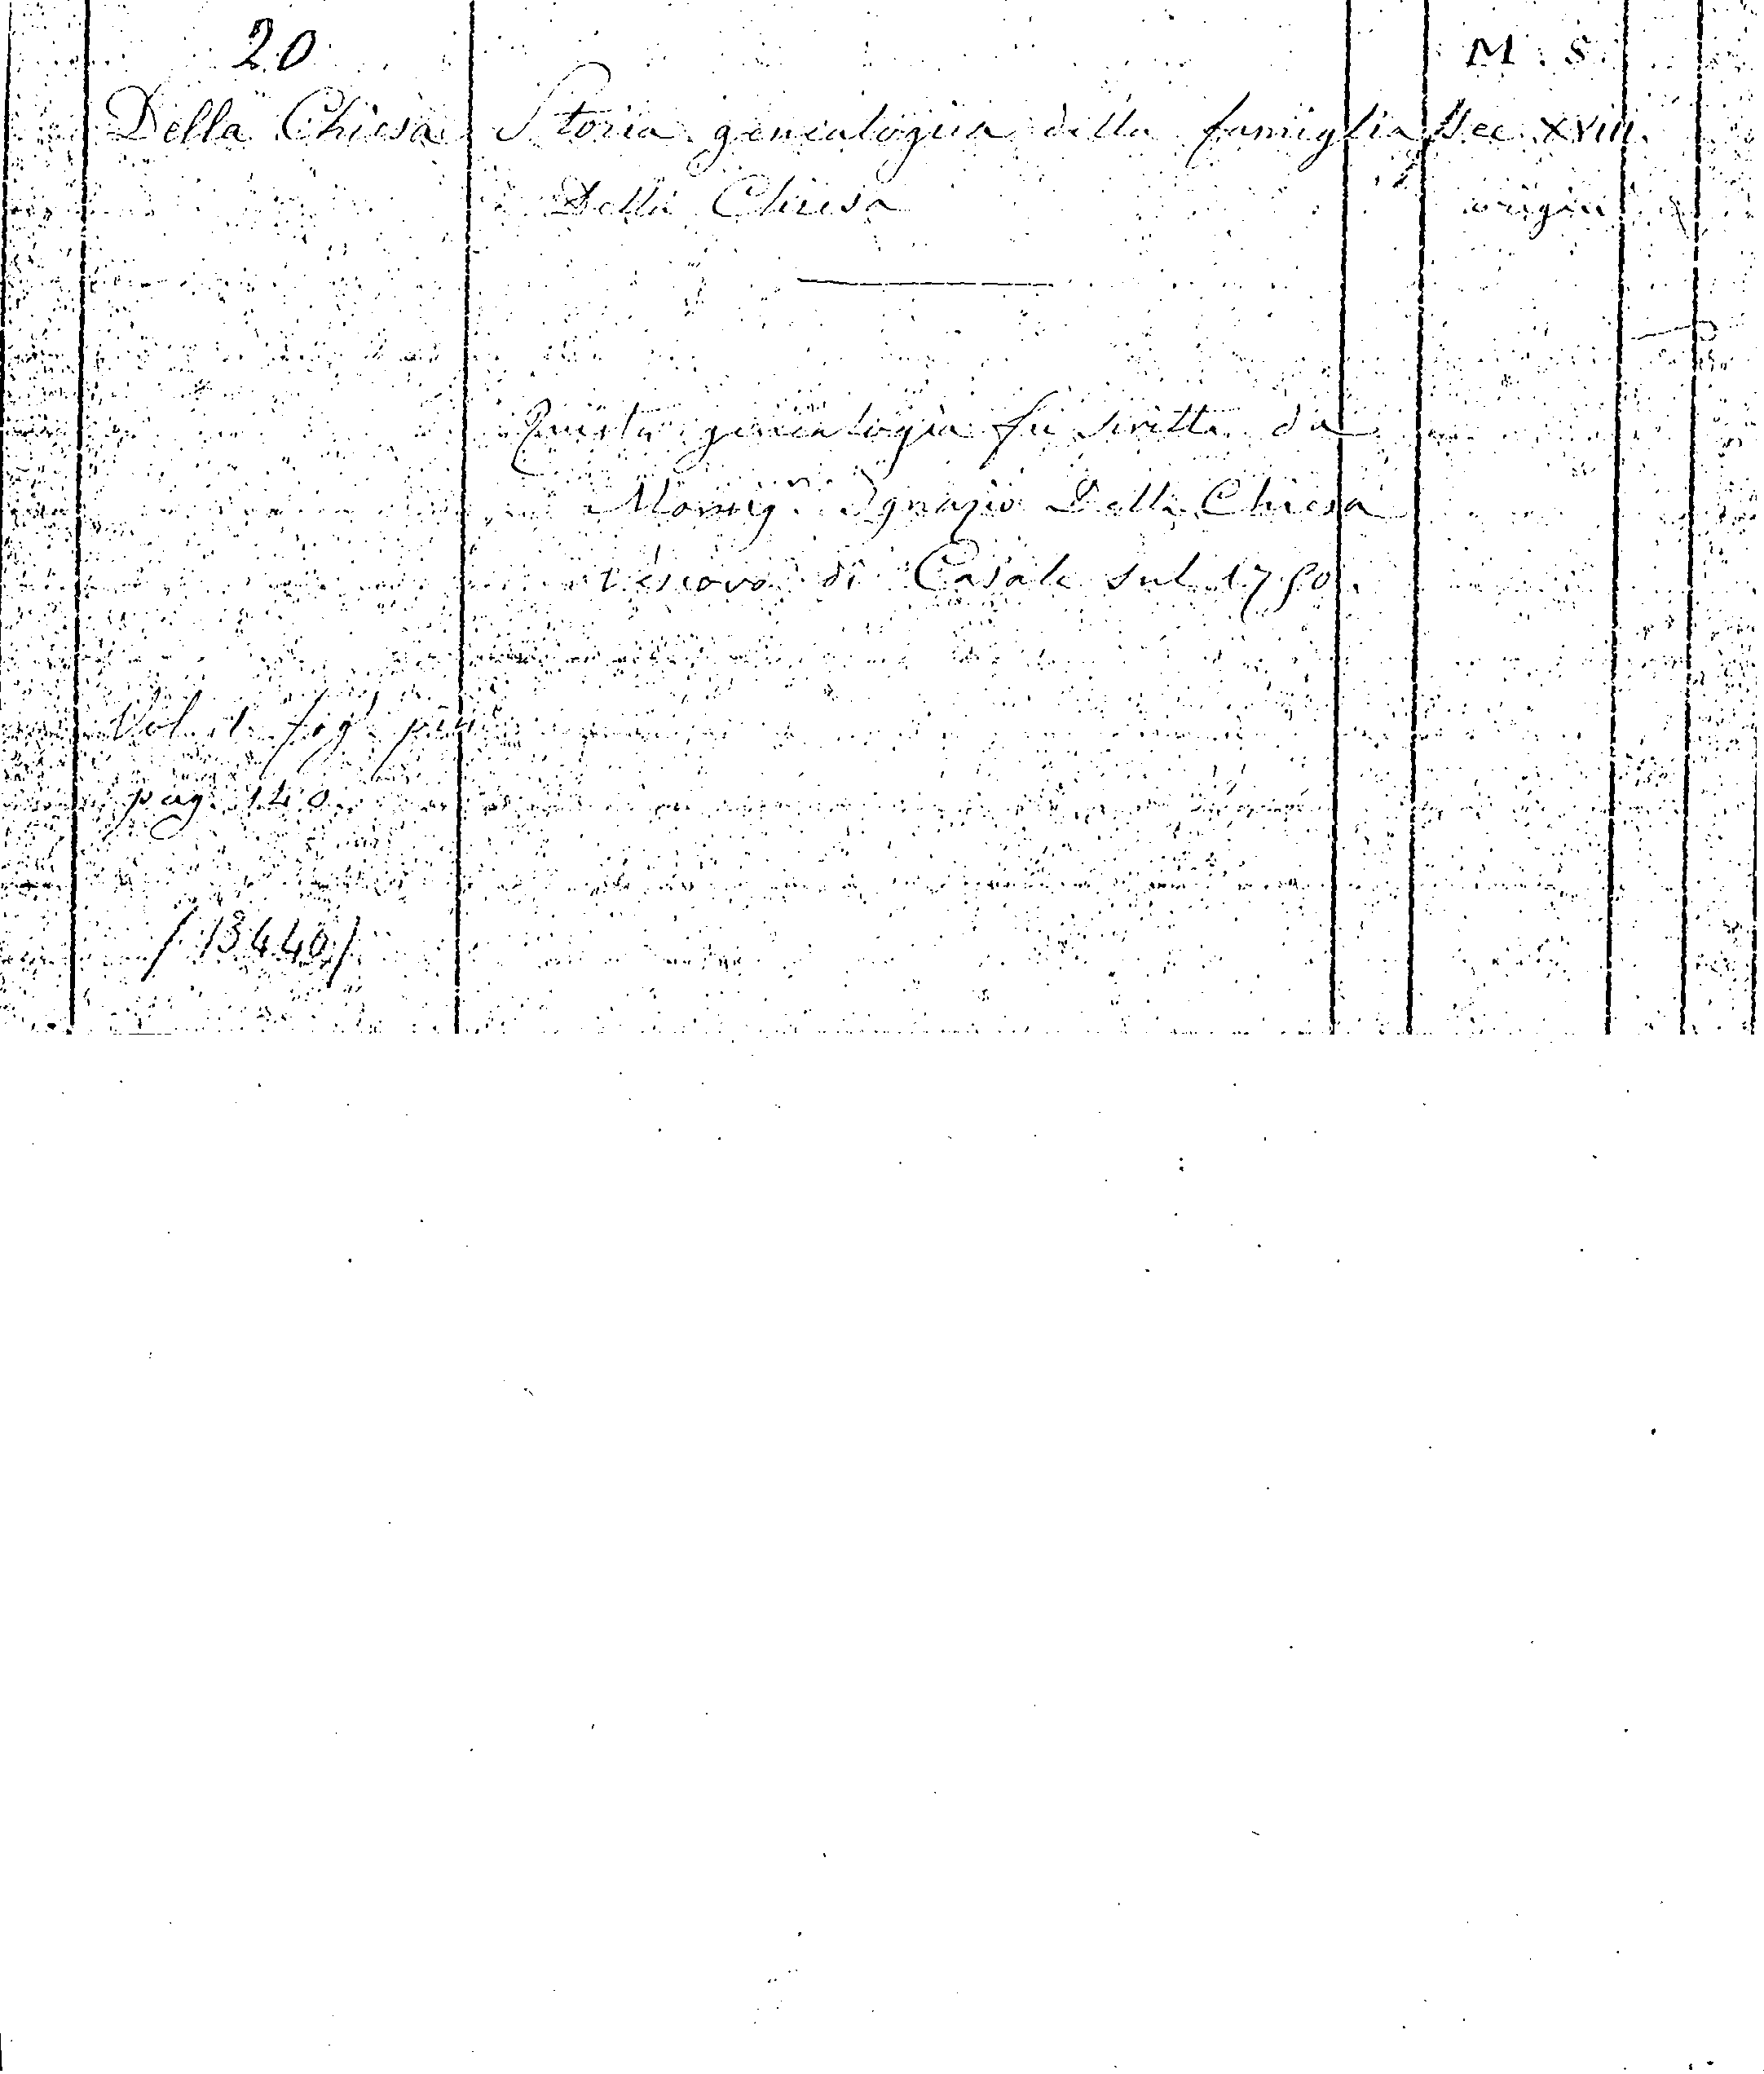 20 M. S.
Della Chiesa Storia genealogica della famiglia Sec. XVIII.
Della Chiesa origin
Questa genealogia fu scritta da
Monsig.n Ignazio Della Chiesa
vescovo di Casale sul 1750.
Vol. 1. fog. pic.
pag. 140.
/13440/